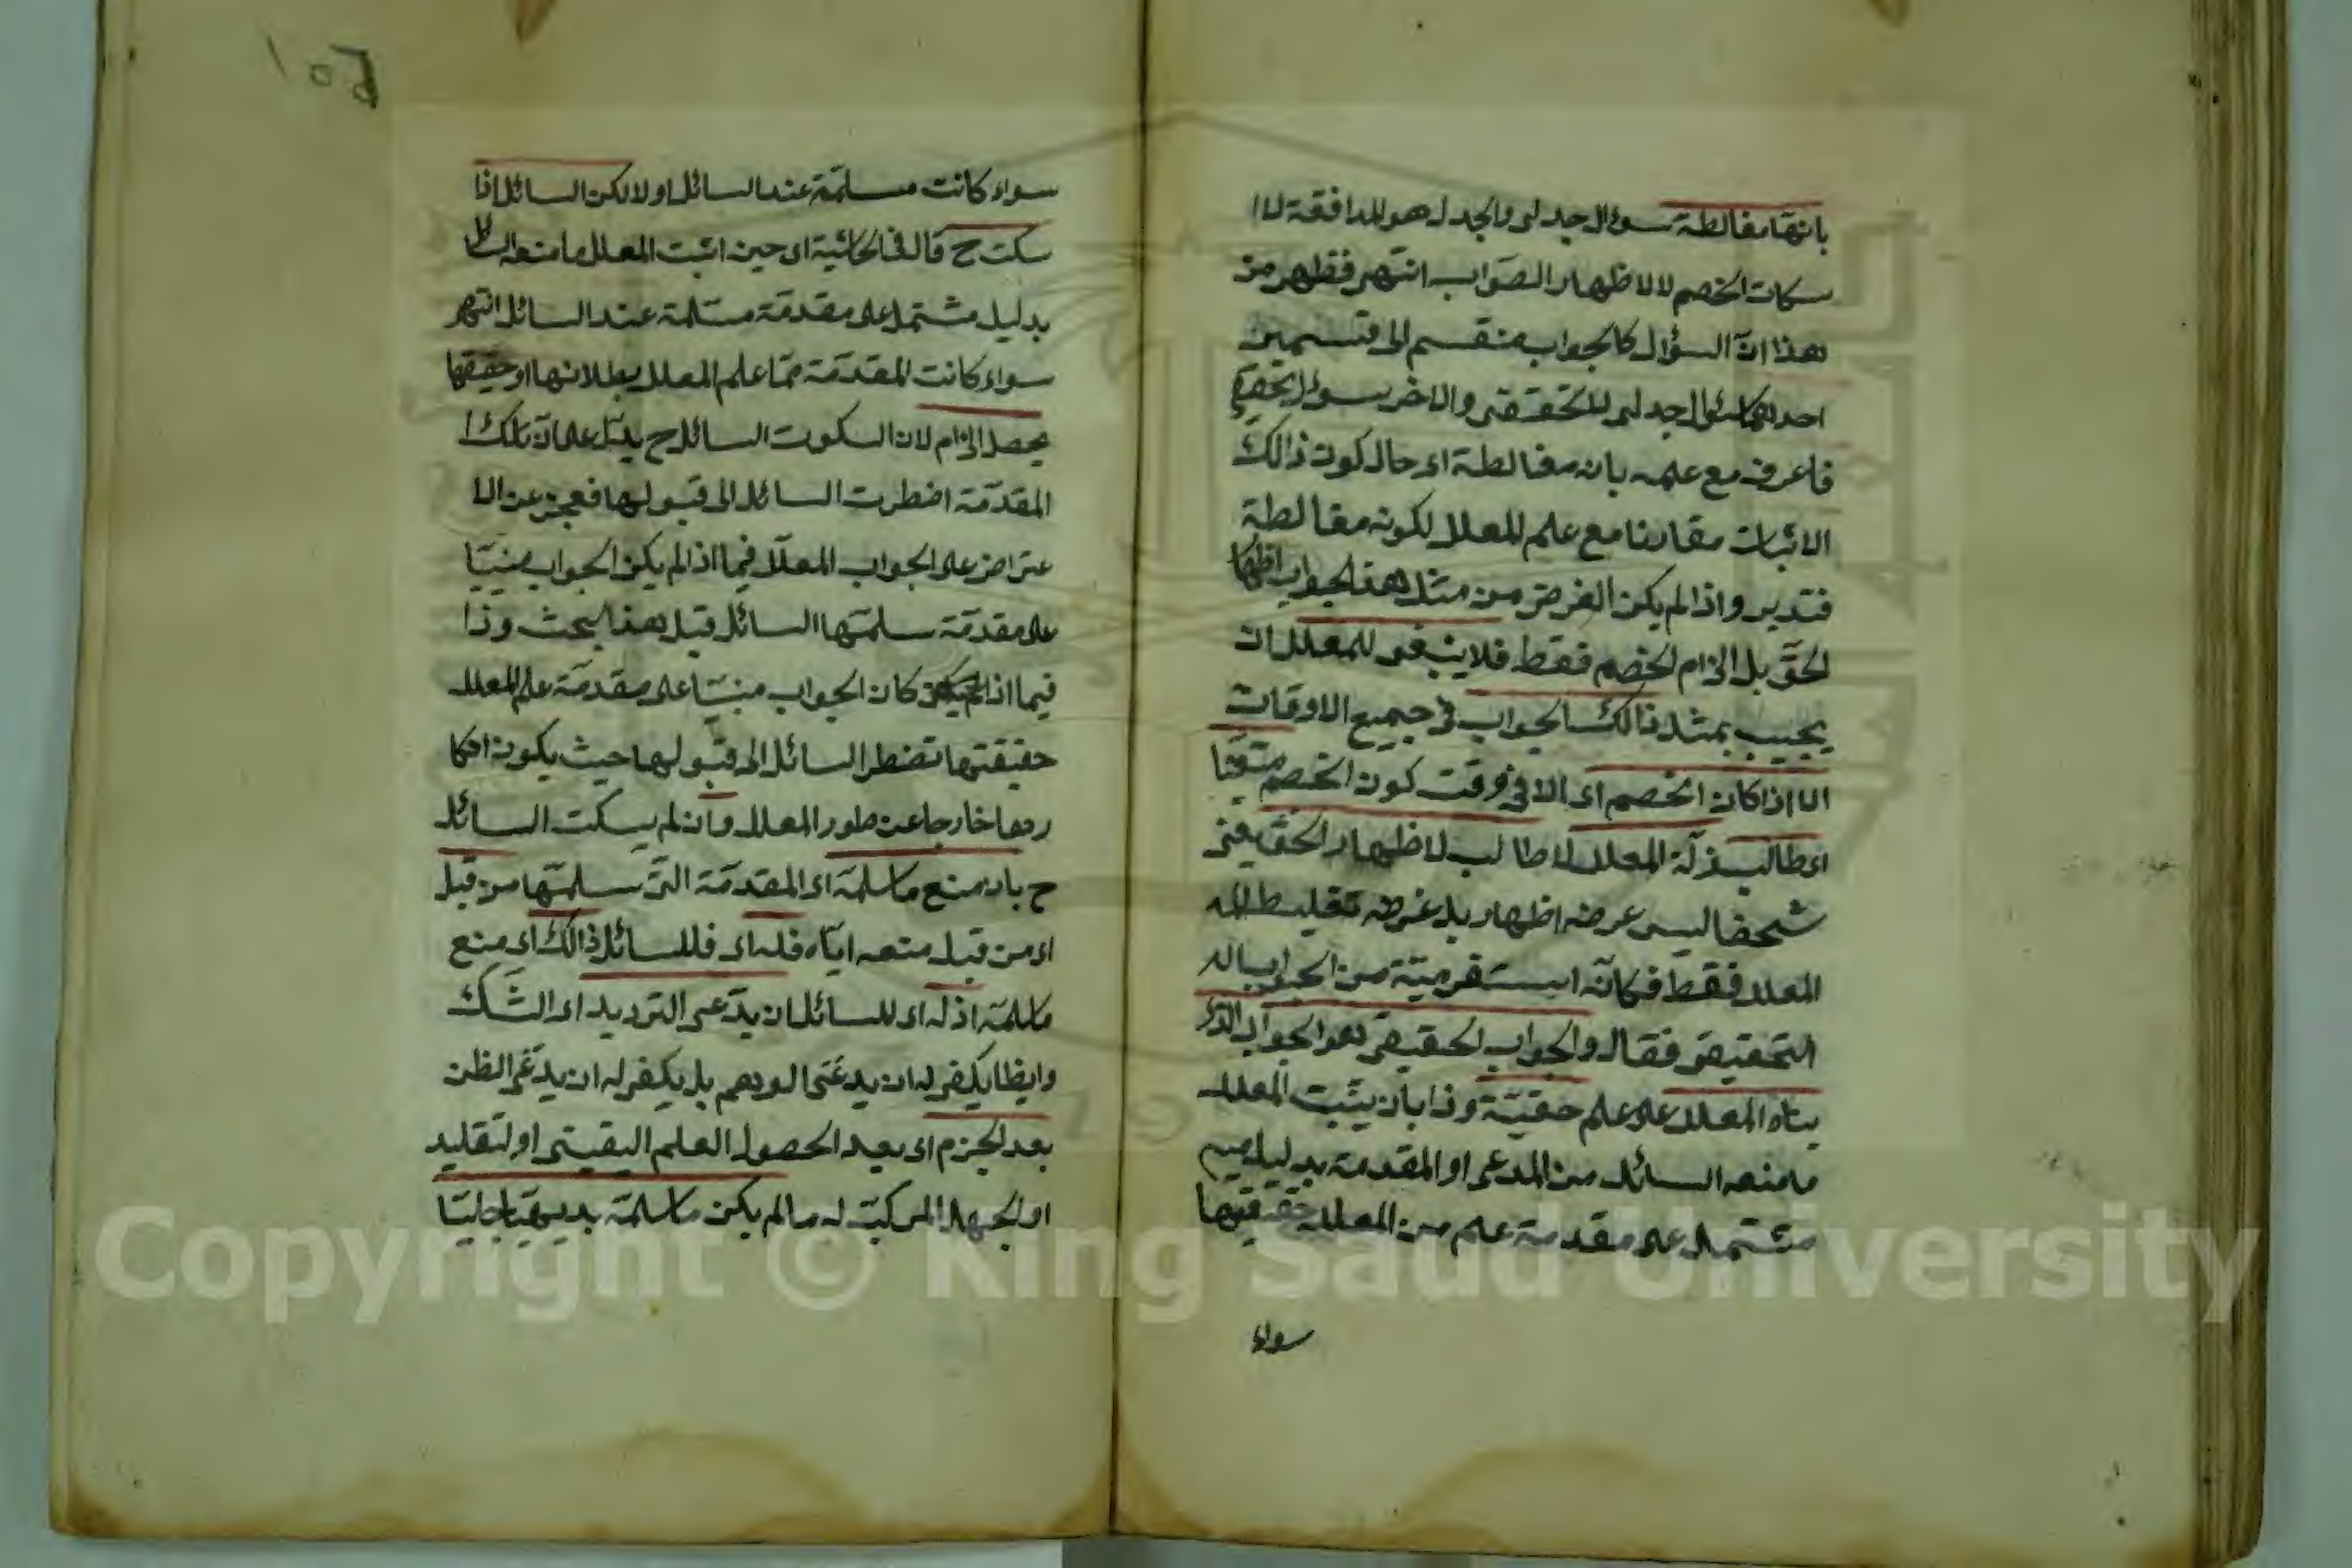 بانها مغالطة سوال جدلى والجدل هو للمدافقة لاا
سكات الخصم لا لاظهار الصواب انتهى فظهر من
هذا ان السؤال كالجواب منقسم الى قسمين
احدهما سئوال جدلى للتحقيقى والاخر سوال تحقيقى
فاعرف مع علمه بانه مغالطة اى حال كون ذالك
الاثبات مقارنا مع علم المعلل لكونه مغالطة
فتدبر واذا لم يكن الغرض من مثل هذا لجواب اظهار
الحق بل الزام الخصم فقط فلا ينبغى للمعلل ان
يجيب بمثل ذالك الجواب فى جميع الاوقات
الا اذا كان الخصم اى الا فى وقت كون الخصم متعنتا
اى طالب زلة المعلل لا طالب لاظهار الحق يعنى
شخصا ليس عرضه اظهار بل غرضه تغليط
المعلل فقط فكانه
التحقيقى فقال والجواب الحقيقى هو الجواب الذى
بناه المعلل على علم حقيتة وذا بان يثبت المعلل
ما منعه السائل من المدعى او المقدمة بدليل
مشتمل على مقدمة علم من المعلل حقيقتها
سواء
١٥٤
سواء كانت مسلمة عند السائل او لا لكن السائل اذا
سكت ح قال فى الحاشية اى حين اثبت المعلل ما منعه السائل
بدليل مشتمل على مقدمة مسلمة عند السائل انتهى
سواء كانت المقدمة مما علم المعلل بطلانها او حقيقتها
يحصل الزام لان السكوت السائل ح يدل على ان تلك ا
المقدمة اضطرت السائل الى قبولها فعجز عن الا
عتراض على الجواب المعلل فيما اذا لم يكن الجواب مبنيا
على مقدمة سلمتها السائل قبل هذا البحث وذا
فيما اذا كان الجواب مبنيا على مقدمة علم المعلل
حقيقتها تضطر السائل الى قبولها حيث يكون انكا
رها خارجا عن طور المعلل وان لم يسكت السائل
ح بان منع ما سلمه اى المقدمة التى سلمتها من قبل
اى من قبل منعه اياه فله اى فللسائل ذالك اى منع
ما سلمه اذ له اى للسائل ان يدعى الترديد اى الشك
وايظا يكفى له ان يدعى الوهم بل يكفى له ان يدعى الظن
بعد الجزم اى بعد الحصول العلم اليقينى او لتقليد
او الجهل المركب له مالم يكن ما سلمه بديهيا جليا